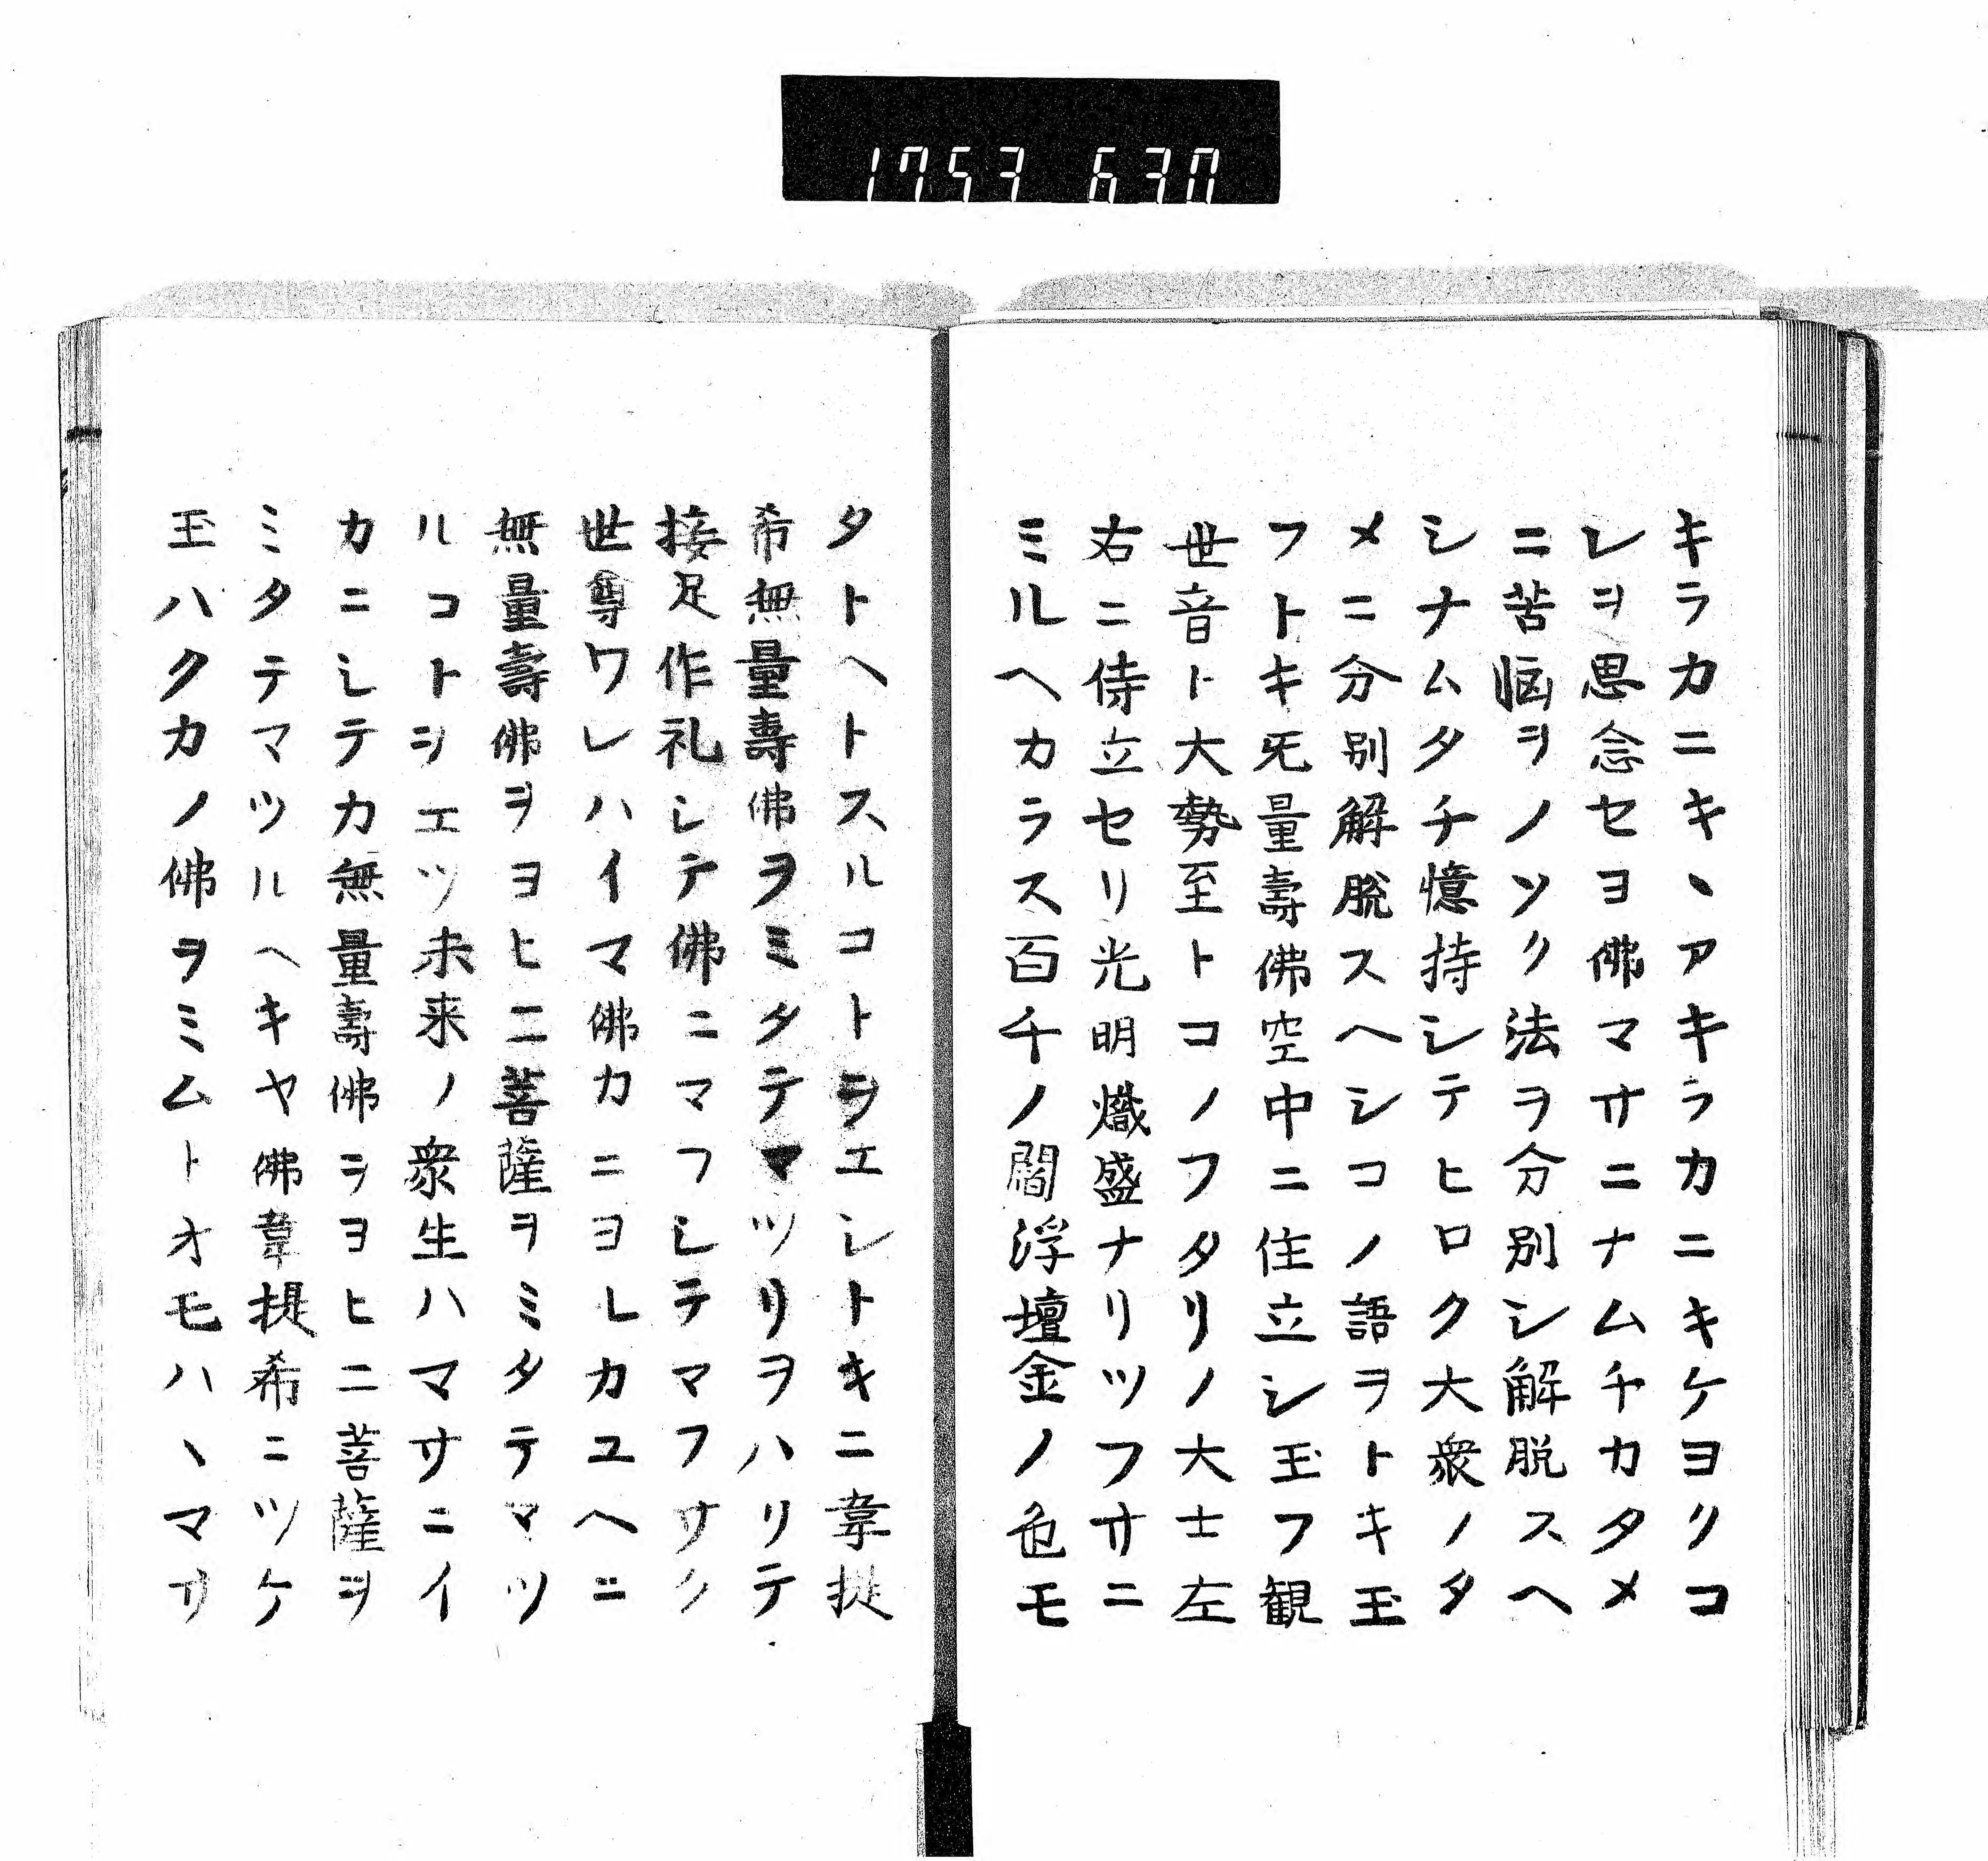 1753 630
キラカニキヽアキラカニキケヨリコ
レヲ思念セヨ佛マサニナムチカタメ
ニ苦惱ヲノソク法ヲ分別シ解脱スヘ
シナムタチ憶持シテヒロク大衆ノタ
メニ分別解脱スヘシコノ語ヲトキ玉
フトキ旡量壽佛空中ニ住立シ玉フ観
世音ト大勢至トコノフタリノ大士左
右ニ侍立セリ光明熾盛ナリツフサニ
ミルヘカラス百千ノ閻浮壇金ノ色モ
タトヘトスルコトヲエシトキニ韋提
希無量壽佛ヲミタテマツリヲハリテ
接足作礼シテ佛ニマフシテマフサク
世尊ワレハイマ佛カニヨレカユヘニ
無量壽佛ヲヨヒ二菩薩ヲミタテマツ
ルコトヲエツ未来ノ衆生ハマサニイ
カニシテカ無量壽佛ヲヨヒ二菩薩ヲ
ミタテマツルヘキヤ佛韋提希ニツケ
玉ハクカノ佛ヲミムトオモハヽマサ